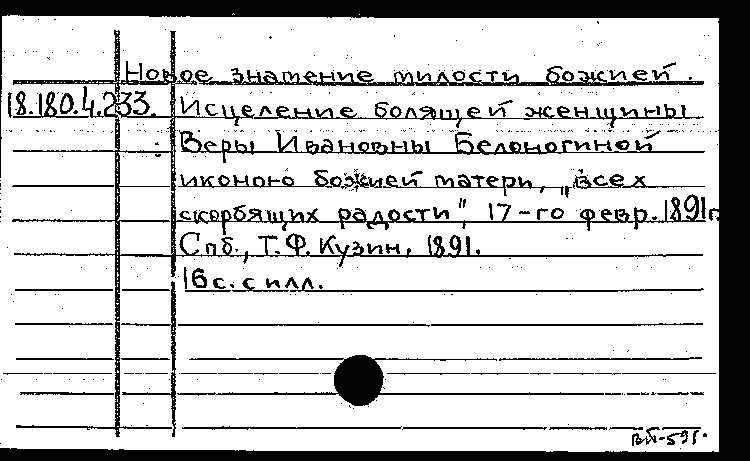 Новое знамение милости божией.
18.180.4.233. Исцеление болящей женщины
Веры Ивановны Белоногиной
иконою божией матери, „всех
скорбящих радости", 17-го февр. 1891г.
Спб., Т.Ф. Кузин, 1891.
16 с. с илл.